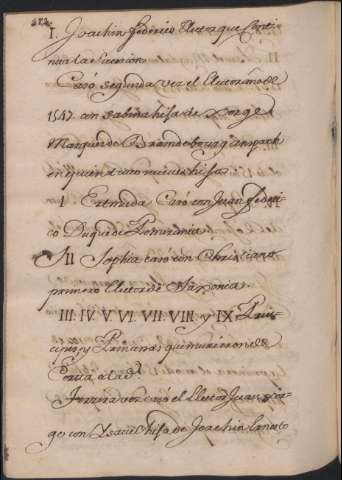 I. Joachin Federico Elector que Conti-
nua la Sucesion
Casó segunda vez el Elector año de
1547. con Sabina hija de Jorge
Marques de Brandebourg Anspach
en quien tuvo nueve hijos
I Ertmuda Casó con Juan Federi-
co Duque de Pomerania
II Sophia caso con Christiano
primero Elector de Saxonia.
III. IV. V. VI. VII. VIII. y IX. Prin-
cipes, y Princesas que murieron de
Corta edad.
Tercera vez casó el Elector Juan Jor-
ge con Ysavel hija de Joachin Ernesto